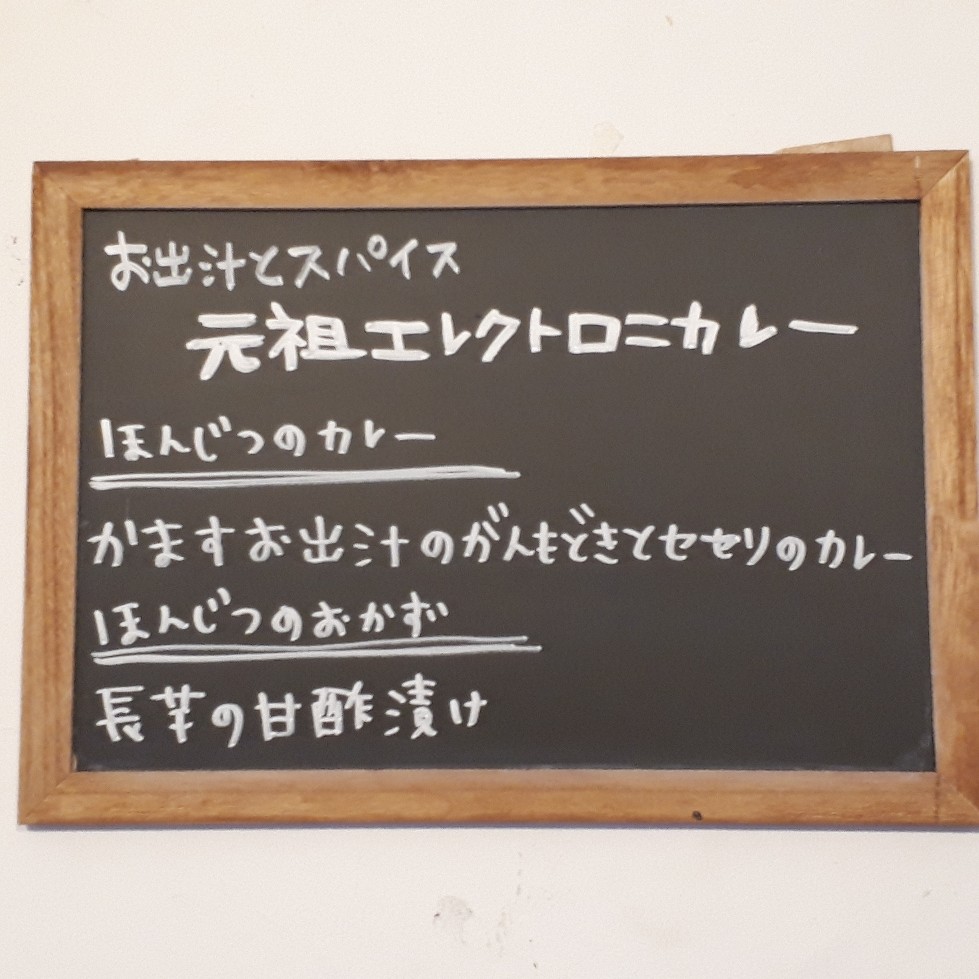 お出汁とスパイス
元祖エレクトロニカレー
ほんじつのカレー
かますお出汁のがんもどきとセセリのカレー
ほんじつのおかず
長芋の甘酢漬け